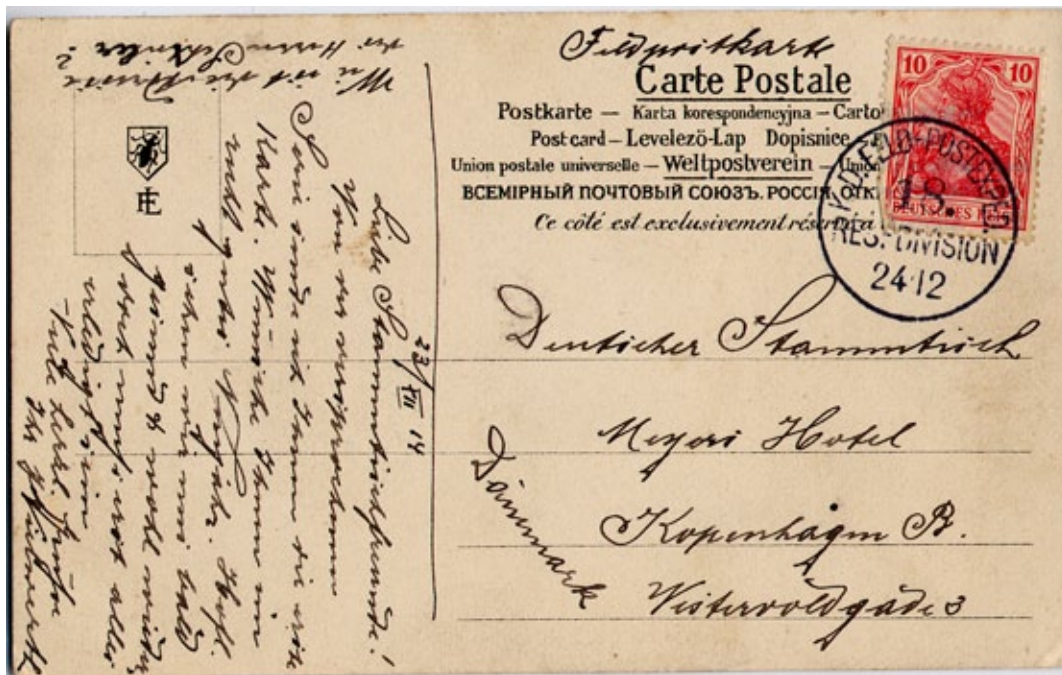 Feldpostkarte
Carte Postale
Postkarte — Karta korespondencyjna — Carto
Post card — Levelező-Lap Dopisnice
Union postale universelle — Weltpostverein — Union
ВСЕМІРНЫЙ ПОЧТОВЫЙ СОЮЗЪ. РОССІЯ. ОТК
Ce côté est exclusivement réservé à
10 10
DEUTSCHES REICH
K.D. FELD-POSTEXPED.
18.
RES. DIVISION
24 12
Deutscher Stammtisch
Meyers Hotel
Kopenhagen B.
Vestervoldgade 3
Dänemark
23/XII 14
Liebe Stammtischfreunde!
Von der versprochenen
Serie sende ich Ihnen die erste
Karte. Wünsche Ihnen ein
recht gutes Neujahr. Hoffl.
sehen wir uns bald
gesund & wohl wieder
doch muss erst alles
erledigt sein
Viele herzl. Grüße
Ihr
Wie ist die Adresse
des Herrn